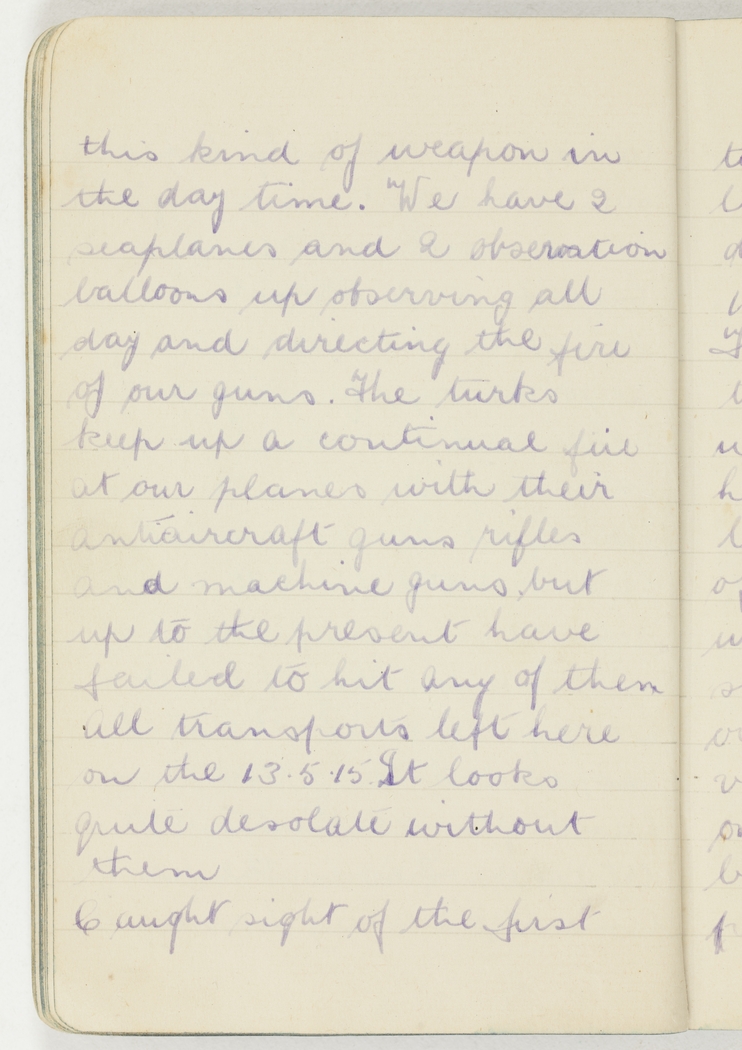 this kind of weapon in
the day time. We have 2
seaplanes and 2 obseration
balloons up observing all
day and directing the fire
of our guns. The turks
keep up a continual fire
at our planes with their
antiaircraft guns rifles
and machine guns, but
up to the present have
failed to hit any of them
all transports left here
on the 13.5.15 It looks
quite desolate without
them
Caught sight of the first